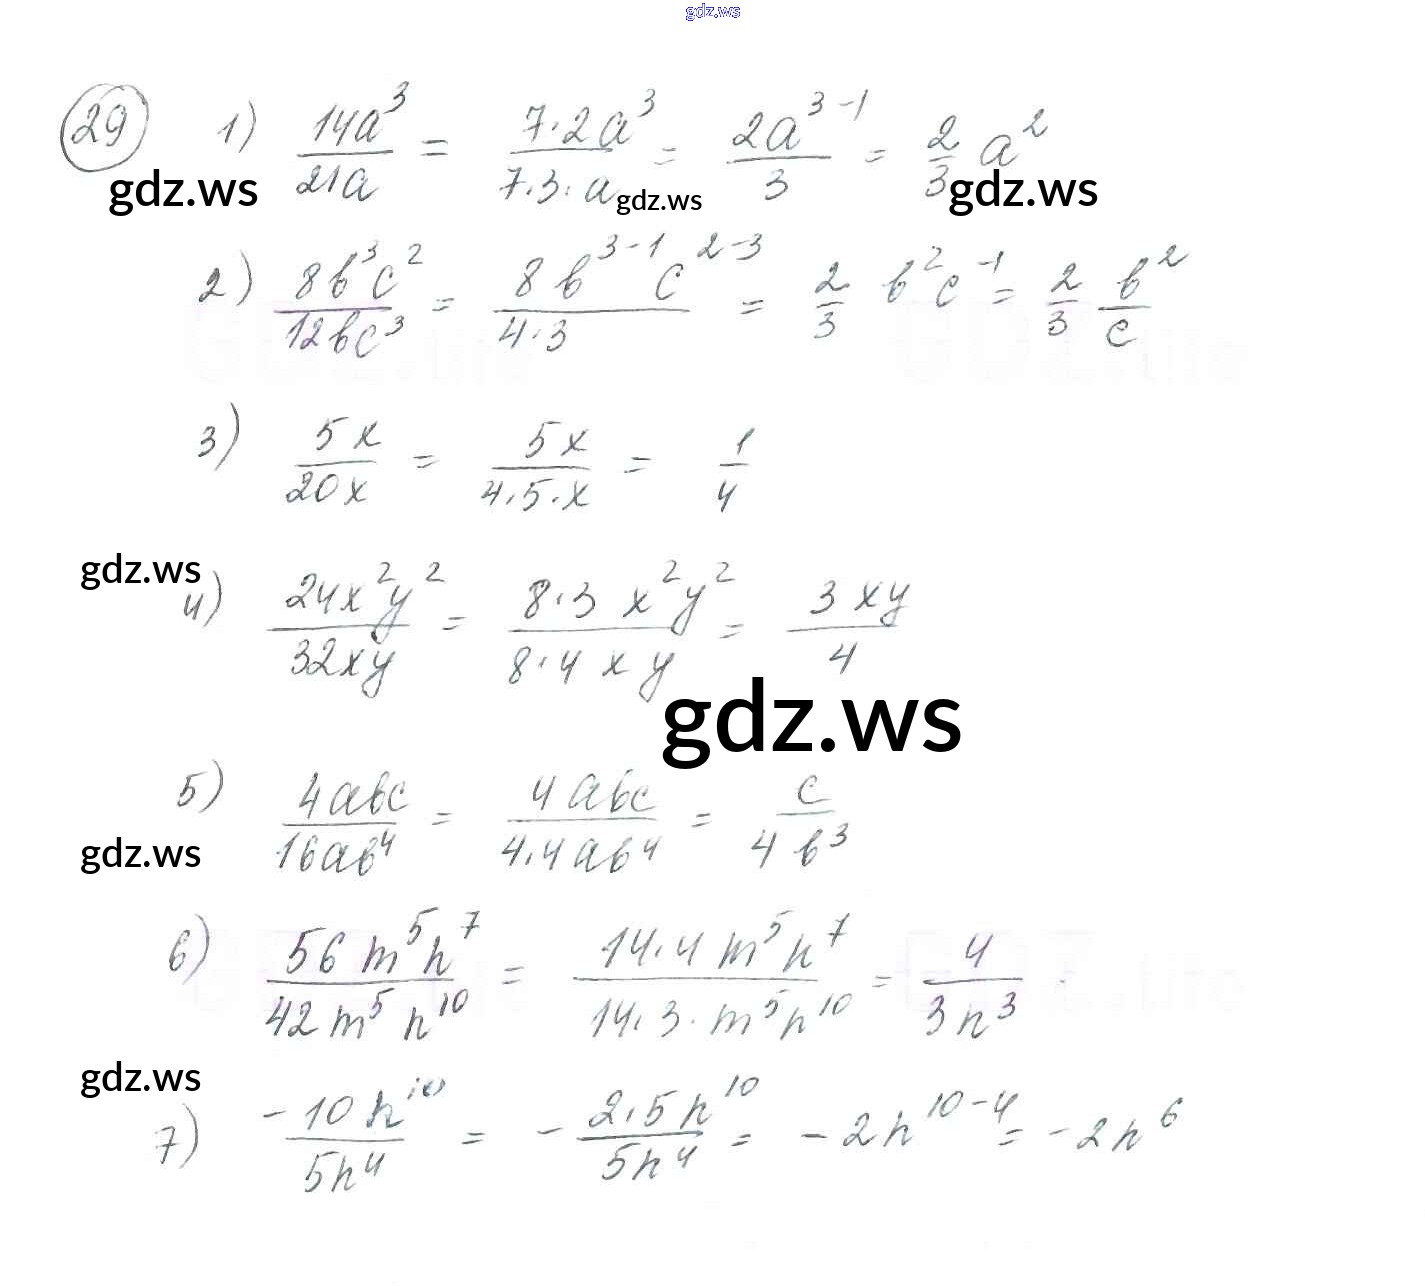 gdz.ws
29 1) 14a^3/21a = 7·2a^3/7·3·a = 2a^(3-1)/3 = 2/3 a^2
gdz.ws gdz.ws gdz.ws
2) 8b^3c^2/12bc^3 = 8b^(3-1)c^(2-3)/4·3 = 2/3 b^2c^(-1) = 2/3 b^2/c
GDZ.life GDZ.life
3) 5x/20x = 5x/4·5·x = 1/4
gdz.ws
4) 24x^2y^2/32xy = 8·3x^2y^2/8·4xy = 3xy/4
gdz.ws
5) 4abc/16ab^4 = 4abc/4·4ab^4 = c/4b^3
gdz.ws
6) 56m^5n^7/42m^5n^10 = 14·4m^5n^7/14·3·m^5n^10 = 4/3n^3
GDZ.life GDZ.life
gdz.ws
7) -10n^10/5n^4 = -2·5n^10/5n^4 = -2n^(10-4) = -2n^6